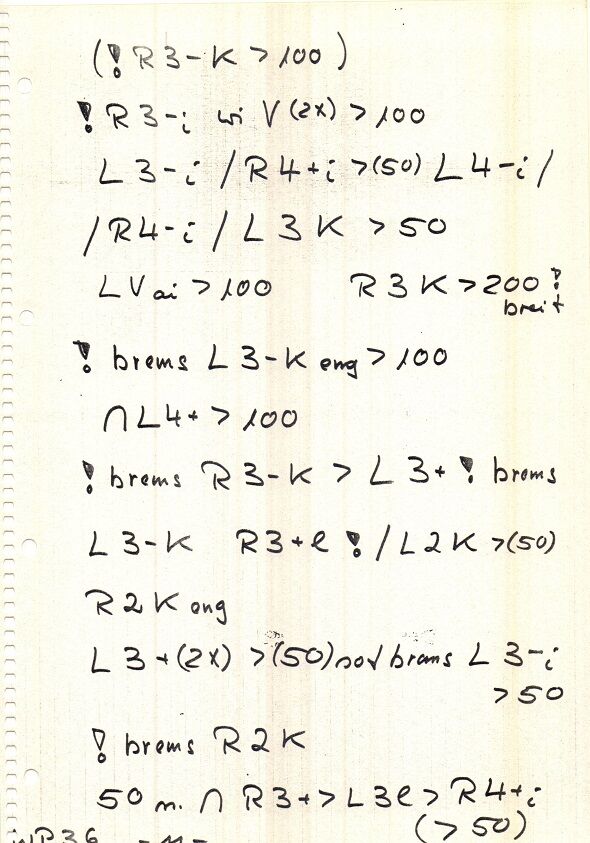 (! R 3 - K > 100 )
! R 3 - i wi V (2x) > 100
L 3 - i / R 4 + i > (50) L 4 - i /
/ R 4 - i / L 3 K > 50
L V ai > 100 R 3 K > 200 !
breit
! brems L 3 - K eng > 100
∩ L 4 + > 100
! brems R 3 - K > L 3 + ! brems
L 3 - K R 3 + l ! / L 2 K > (50)
R 2 K eng
L 3 + (2x) > (50) brems L 3 - i
> 50
! brems R 2 K
50 m. ∩ R 3 + > L 3 l > R 4 + i
(> 50)